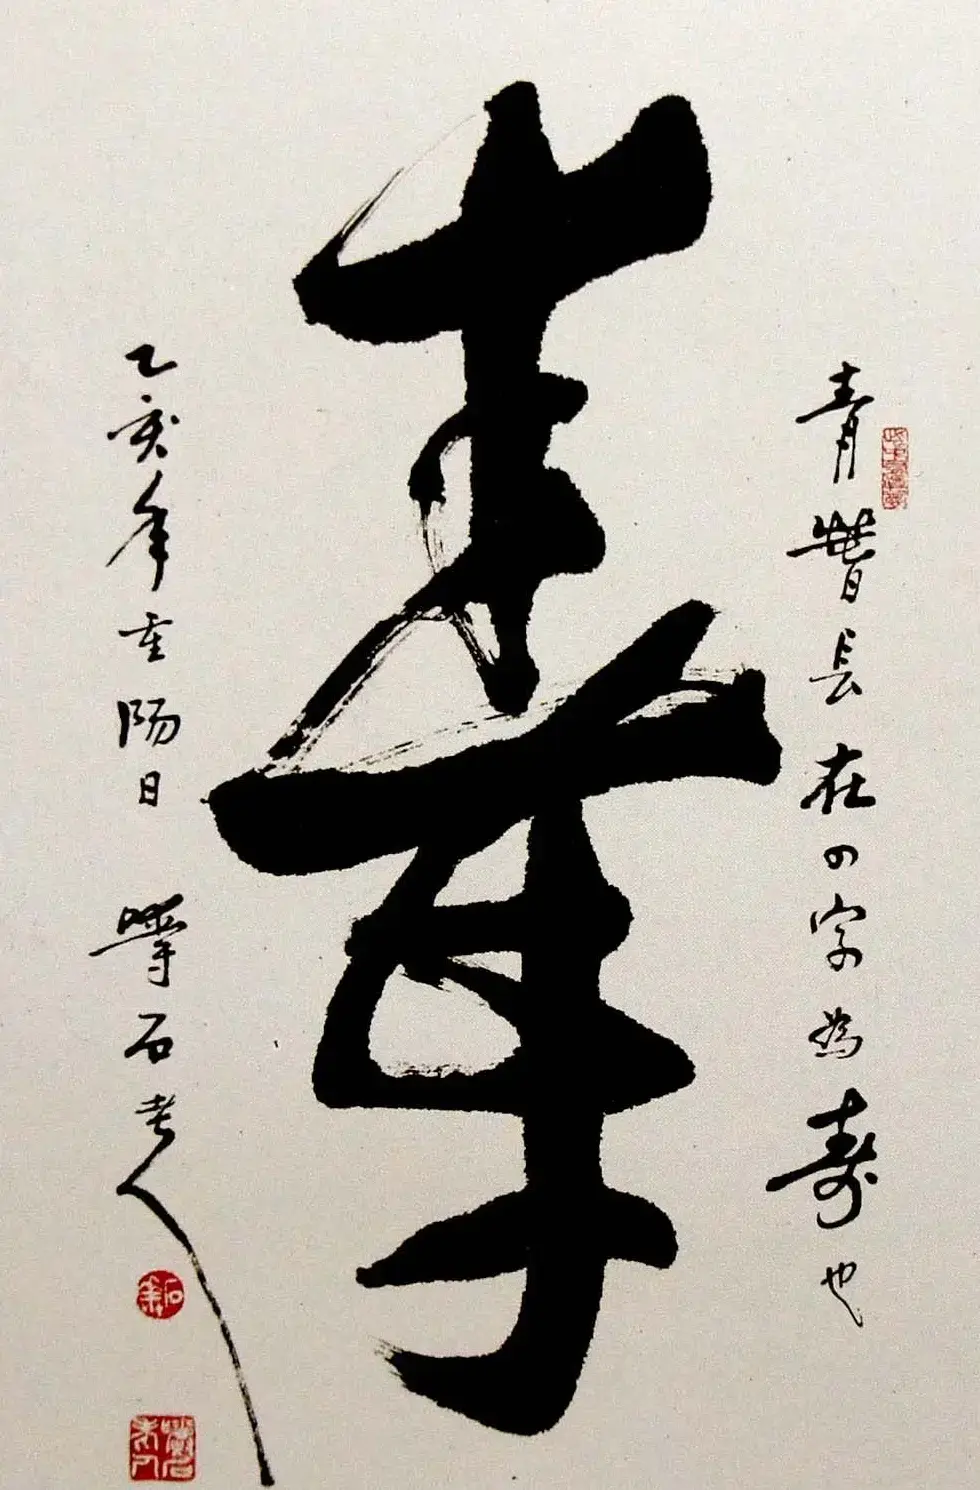 青春長在四字為寿也
寿
乙亥年重陽日
石老人